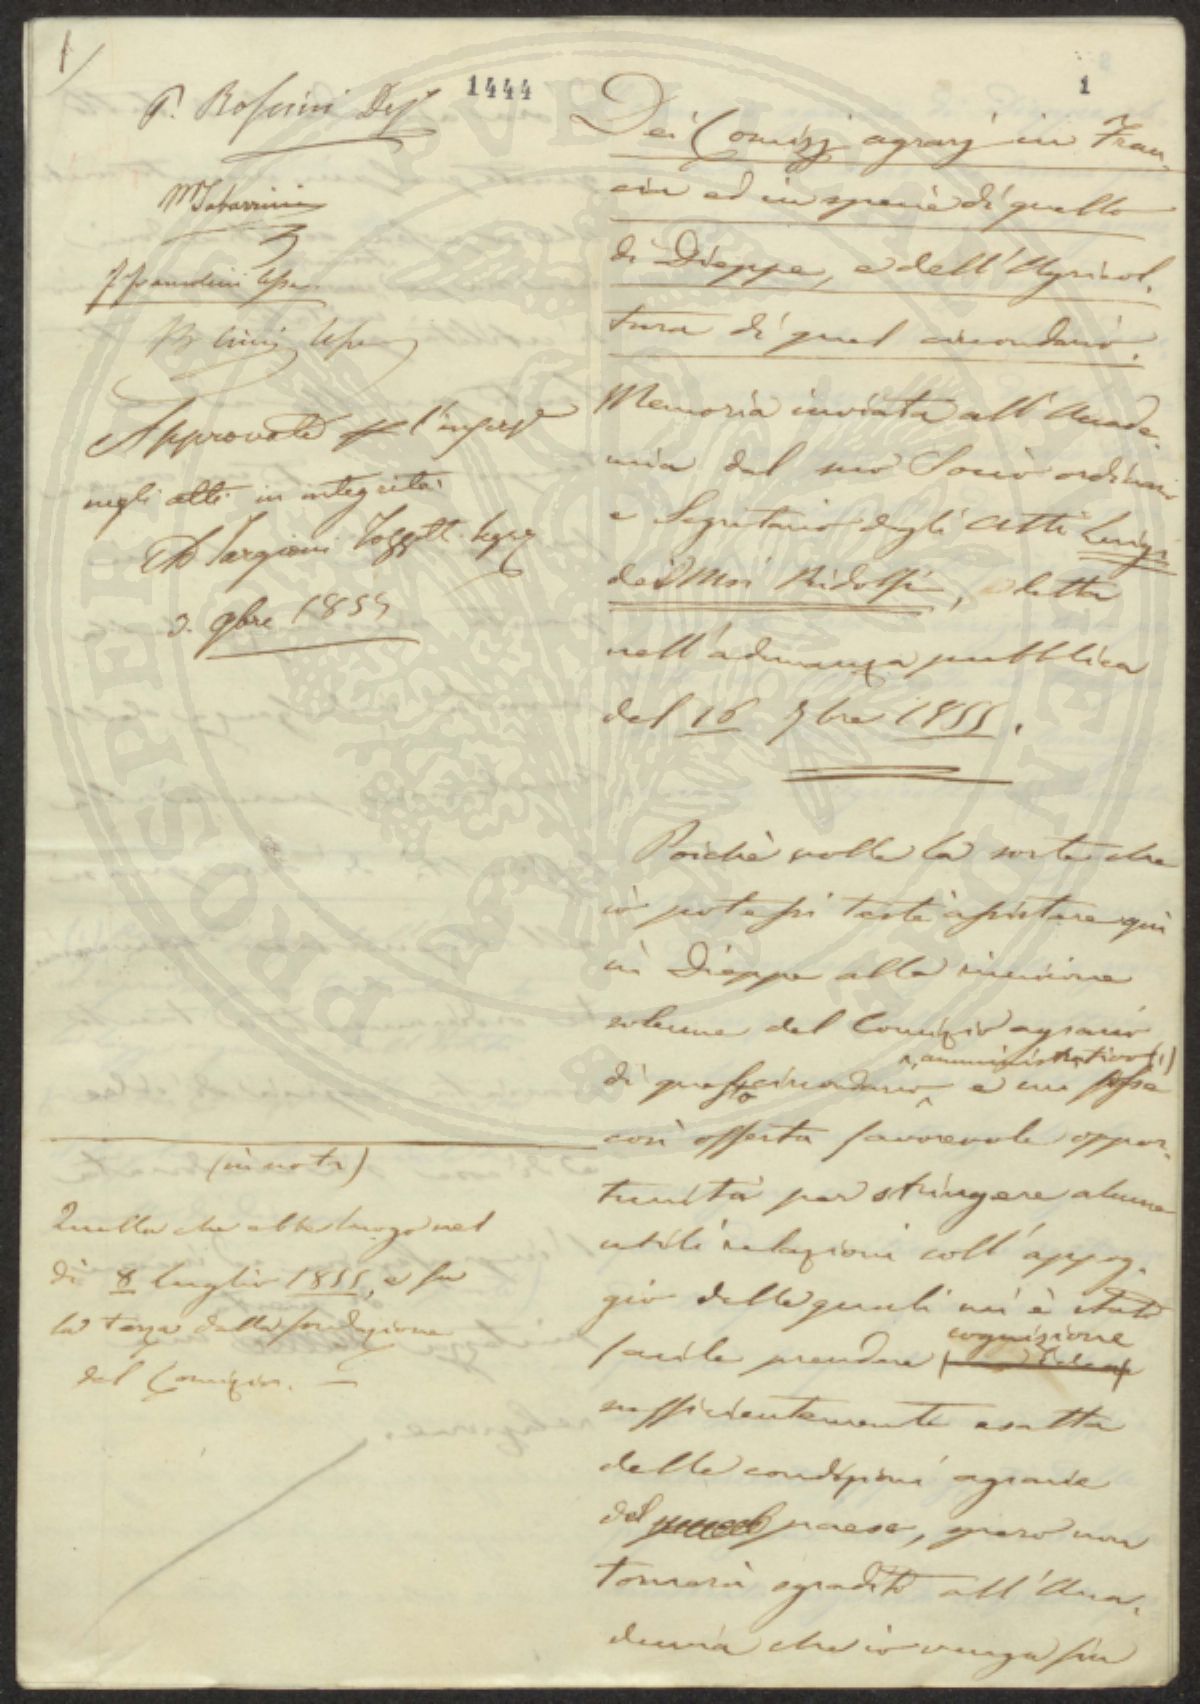 1
1444
1
P. Roserini Dep.
MTabarrini
Approvata per l'inserz.
negli atti in integrità
A Targioni Tozzetti Segr.
3. 9bre 1855
(in nota)
Quella che ebbe luogo nel
dì 8 luglio 1855, e fu
la terza dalla fondazione
del Comizio. —
Dei Comizj agrarj in Fran-
cia ed in specie di quello
di Dieppe, e dell'Agricol-
tura di quel circondario.
Memoria inviata all'Accade-
mia dal suo Socio ordinario
e Segretario degli Atti Luigi
dei Msi Ridolfi, e letta
nell'adunanza pubblica
del 16 7bre 1855.
Poichè volle la sorte che
io potessi testè assistere quì
in Dieppe alla riunione
solenne del Comizio agrario
amministrativo (1)
di questo circondario e mi fosse
così offerta favorevole oppor-
tunità per stringere alcune
utili relazioni coll'appog-
gio delle quali mi è stato
cognizione
facile prendere
sufficientemente esatta
delle condizioni agrarie
del paese, spero non
tornerà sgradito all'Acca-
demia che io venga fin
PROSPERITATI PVBLICAE AVGENDAE